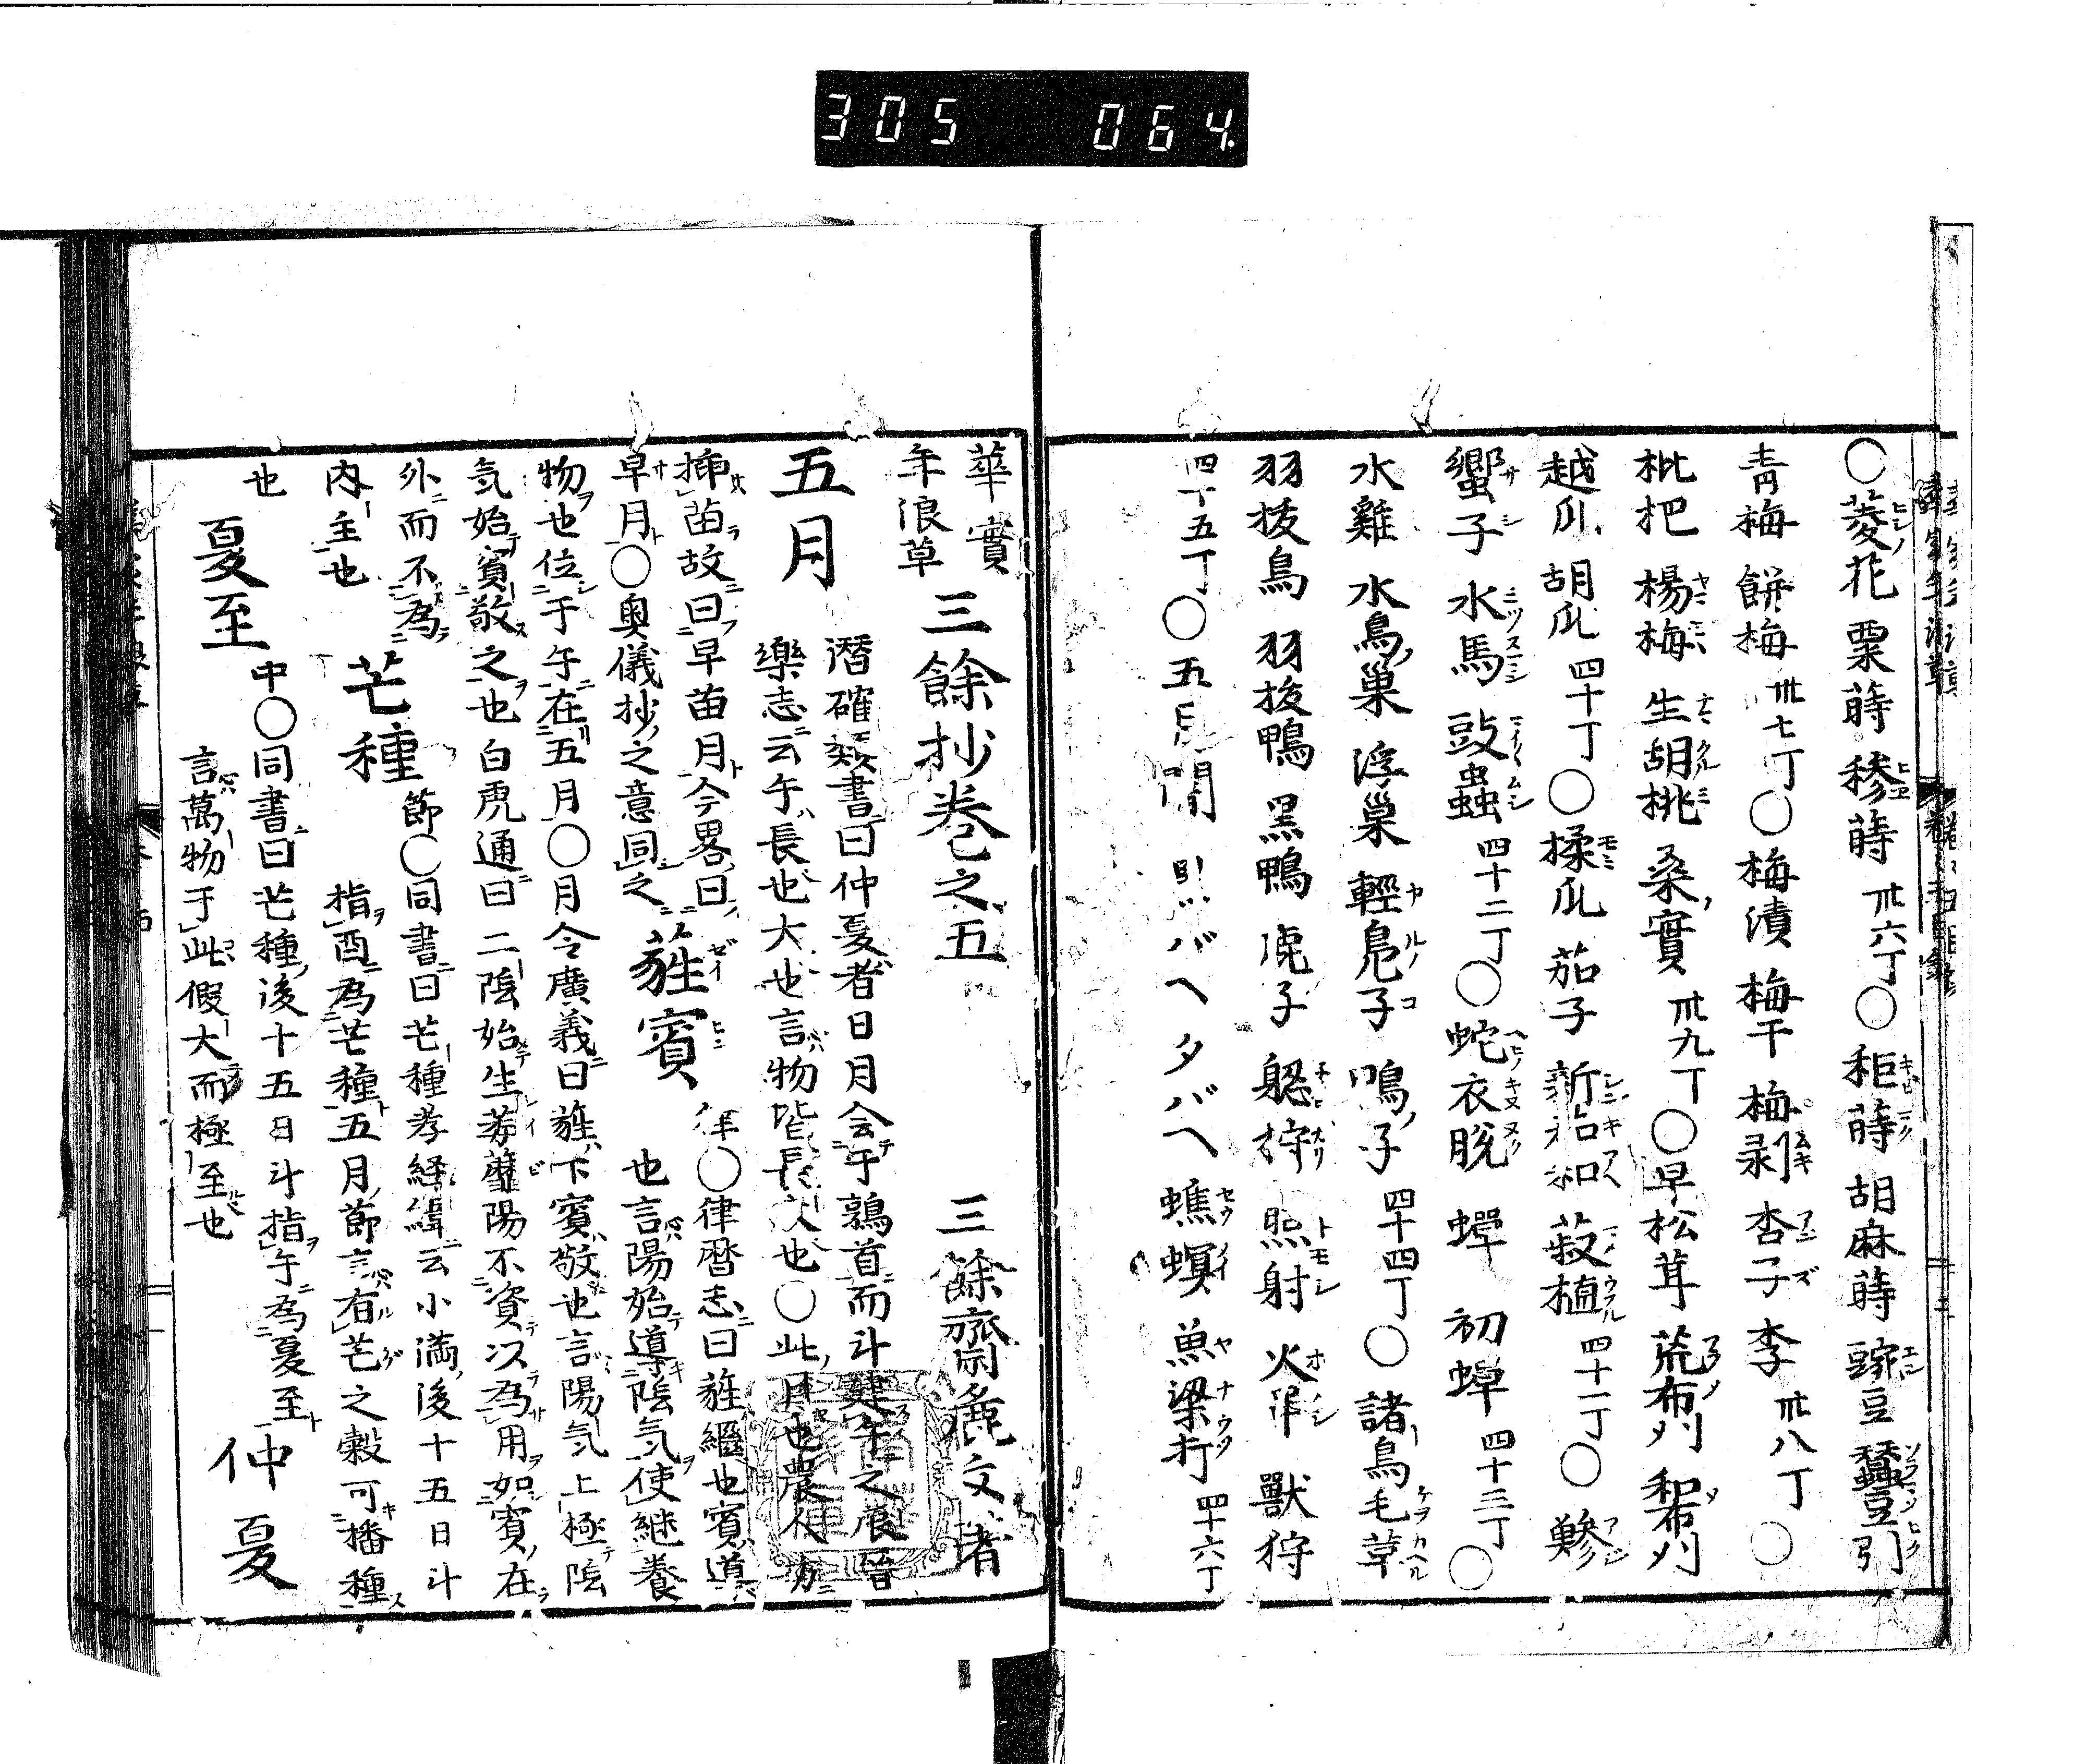 305 064
○菱花 粟蒔 穇蒔 卅六丁○秬蒔 胡麻蒔 豌豆 蠶豆引
青梅 餅梅 卅七丁○梅漬 梅干 梅剥 杏子 李 卅八丁○
枇杷 楊梅 生胡桃 桑實 卅九丁○早松茸 荒布刈 和布刈
越瓜 胡瓜 四十丁○揉瓜 茄子 菽植 四十一丁○
蠁子 水馬 豉蟲 四十二丁○蛇衣脱 蟬 初蟬 四十三丁○
水雞 水鳥巢 浮巢 輕鳧子 鳴子 四十四丁○諸鳥毛草
羽抜鳥 羽抜鴨 黒鴨 鹿子 照射 火串 獸狩
四十五丁○五月闇 バヘ タバヘ 蟭螟 魚梁打 四十六丁
華實
年浪草 三餘抄卷之五 三餘齋麁文著
五月 潛確類書曰仲夏者日月会于鶉首而斗建午之辰晉
樂志云午長也大也言物皆長大也○此月也農人方
挿苗故曰早苗月今畧曰
早月○奥儀抄之意同之 蕤賓 律○律暦志曰蕤繼也賓道
也言陽始導陰気使継養
物也位于午在五月○月令廣義曰蕤下賓敬也言陽気上極陰
気始賓敬之也白虎通曰二陰始生陽不資以為用如賓在
外而不為
内主也 芒種 節○同書曰芒種孝経緯云小満後十五日斗
指酉為芒種五月節言有芒之穀可播種
也 夏至 中○同書曰芒種後十五日斗指午為夏至
言萬物于此假大而極至也 仲夏